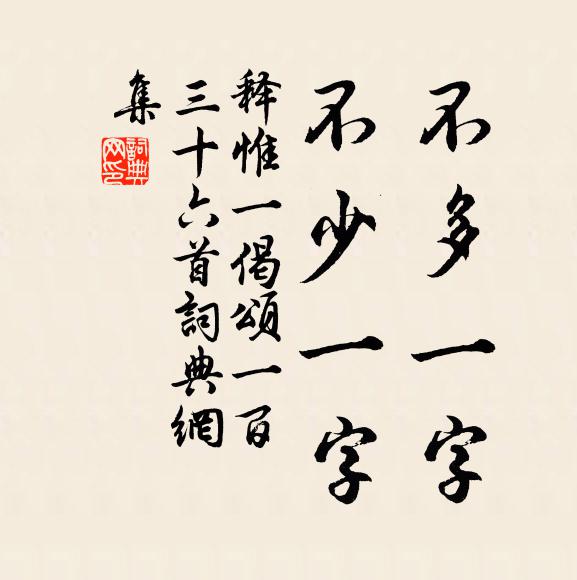 不多一字
不少一字
释惟一偈頌一百
三十六首詞典網
集
詞典
网印